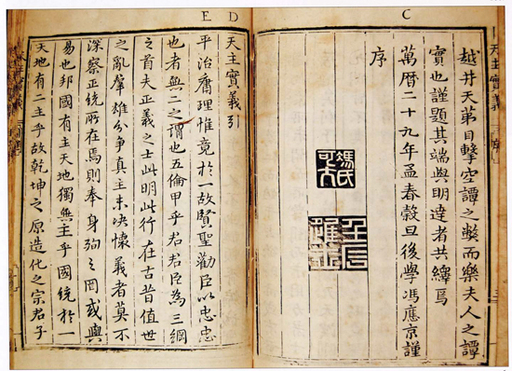 C
越井天第目擊空譚之弊而樂夫人之譚
實也謹題其端與明達者共繹焉
萬曆二十九年孟春穀旦後學馮應京謹
序
馮氏可大
天主實義
D
E
天主實義引
平治庸理惟竟於一故賢聖勸臣以忠忠
也者無二之謂也五倫甲乎君君臣為三綱
之首夫正義之士此明此行在古昔值世
之亂羣雄分爭真主未決懷義者莫不
深察正統所在焉則奉身殉之罔或與
易也邦國有主天地獨無主乎國統於一
天地有二主乎故乾坤之原造化之宗君子